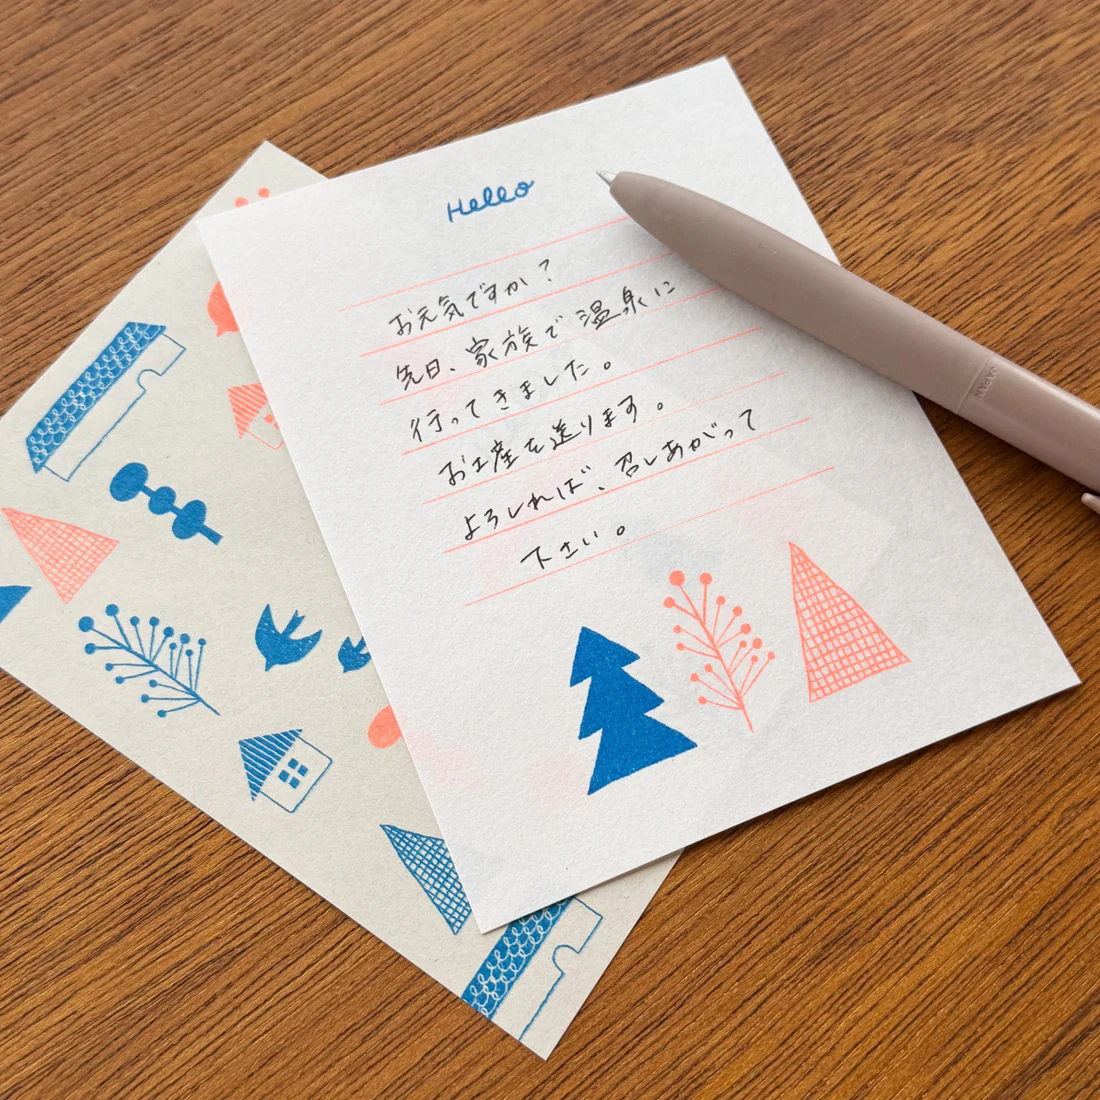 Hello
お元気ですか？
先日、家族で温泉に
行ってきました。
お土産を送ります。
よろしれば、召しあがって
下さい。
JAPAN